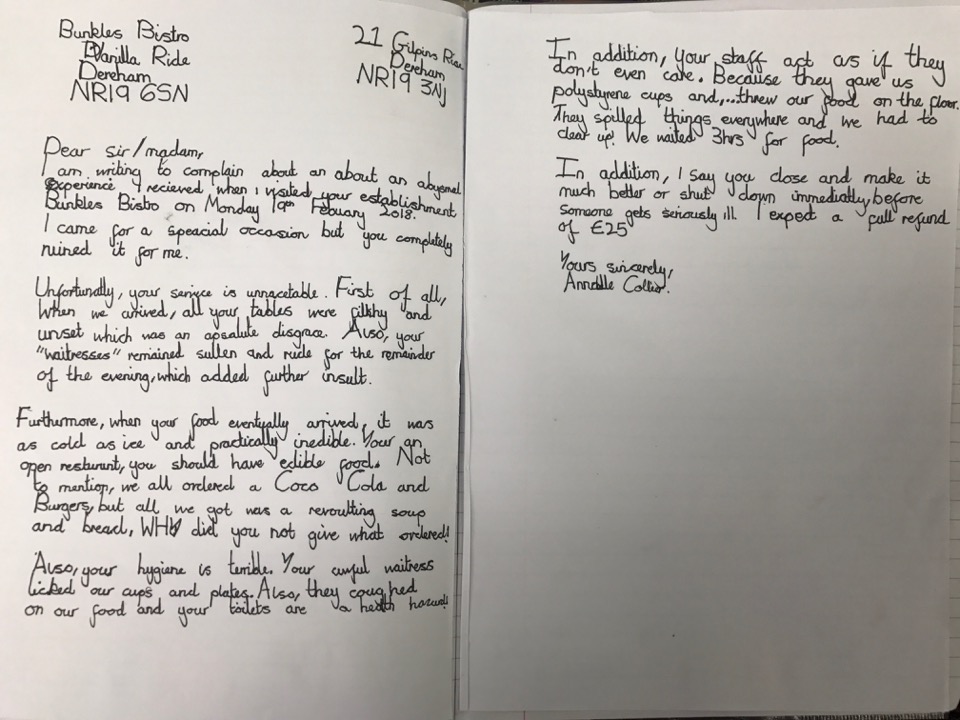 Bunkles Bistro
Vanilla Ride
Dereham
NR19 6SN
21 Gilpins Ride
Dereham
NR19 3NJ
Dear sir/madam,
I am writing to complain about an about an abysmal
experience I recieved when i visited your establishment
Bunkles Bistro on Monday 19th Febuary 2018.
I came for a speacial occasion but you completely
ruined it for me.
Unfortunatly, your service is unnacetable. First of all,
when we arrived, all your tables were filthy and
unset which was an apsalute disgrace. Also, your
"waitresses" remained sullen and rude for the remainder
of the evening, which added further insult.
Furthermore, when your food eventually arrived, it was
as cold as ice and practically inedible. Your an
open resturant, you should have edible food. Not
to mention, we all ordered a Coco Cola and
Burgers, but all we got was a revoulting soup
and bread, WHY did you not give what ordered!
Also, your hygiene is terrible. Your awful waitress
licked our cups and plates. Also, they coughed
on our food and your toilets are a health hazard!
In addition, your staff act as if they
don't even care. Because they gave us
polystyrene cups and,...threw our food on the floor.
They spilled things everywhere and we had to
clear up! We waited 3hrs for food.
In addition, I say you close and make it
much better or shut down immediatly before
someone gets seriously ill. I expect a full refund
of £25
Yours sincerely,
Annabelle Collier.